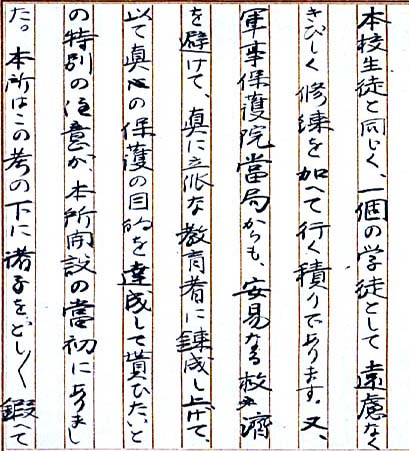 本校生徒と同じく、一個の学徒として遠慮なく
きびしく修練を加へて行く積りであります。又、
軍事保護院當局からも、安易なる救濟
を避けて、真に立派な教育者に錬成し上げて、
以て真の保護の目的を達成して貰ひたいと
の特別の注意が、本所開設の當初にありまし
た。本所はこの考の下に諸子をどし〱鍛へて